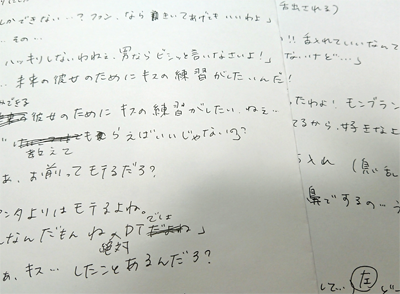 しかできない…?ファン、なら聞いてあげてもいいわよ」
…その…
ハッキリしないわねぇ、男ならビシッと言いなさいよ!」
…未来の彼女のためにキスの練習がしたいんだ!
彼女のためにキスの練習がしたい、ねぇ…
教えてもらえばいいじゃないの?
ぁ、お前ってモテるだろ?
アンタよりはモテるよね。
なんだもんね、DTでは
絶対
ぁ、キス…したことあるんだろ?
舌出される)
!!舌入れていいなんて
ないけど…」
たわよ!モンブラン
てるから、好きなよ
舌入れ
鼻でするの…う
して…
左